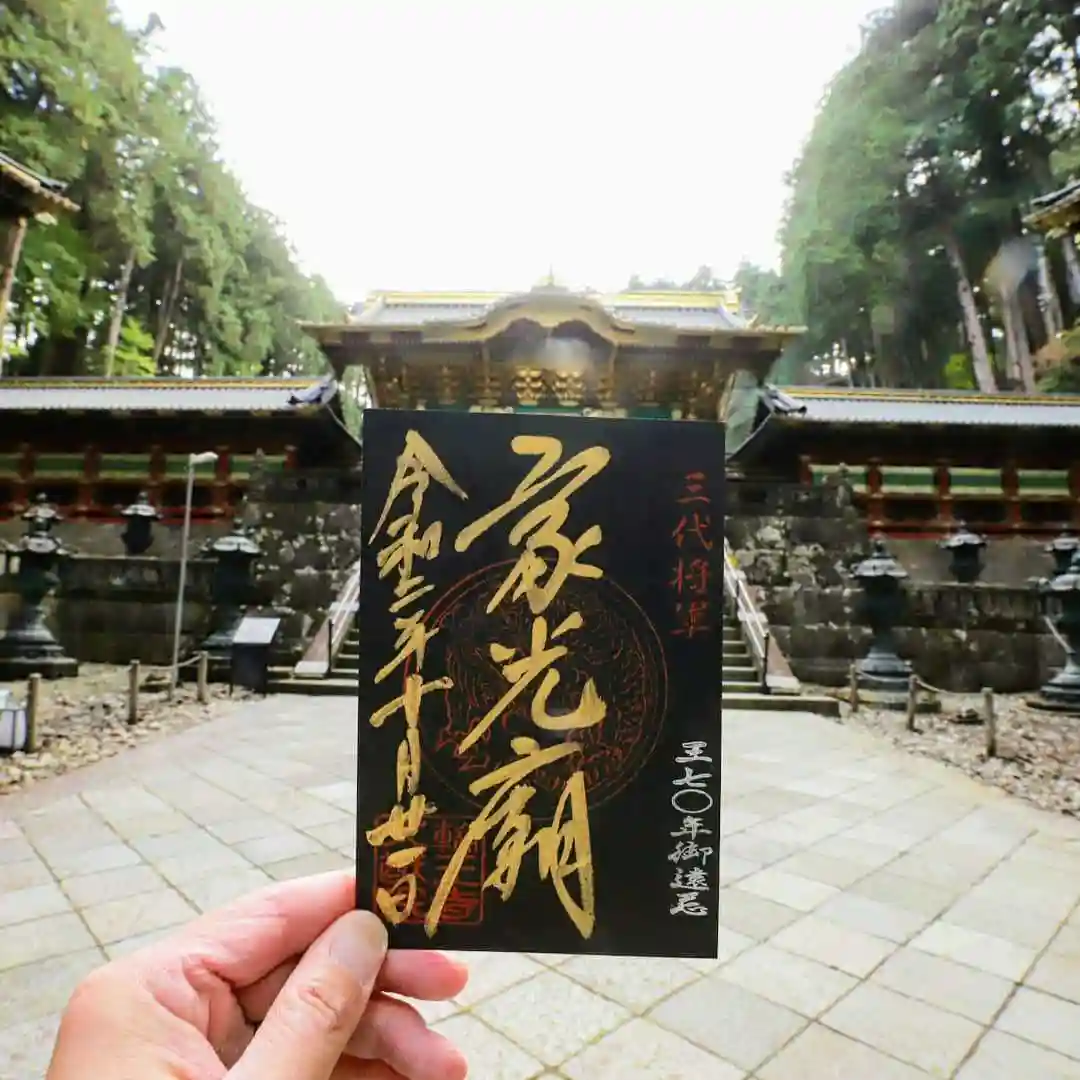 三代将軍
三七〇年御遠忌
家光廟
令和三年十月丗一日